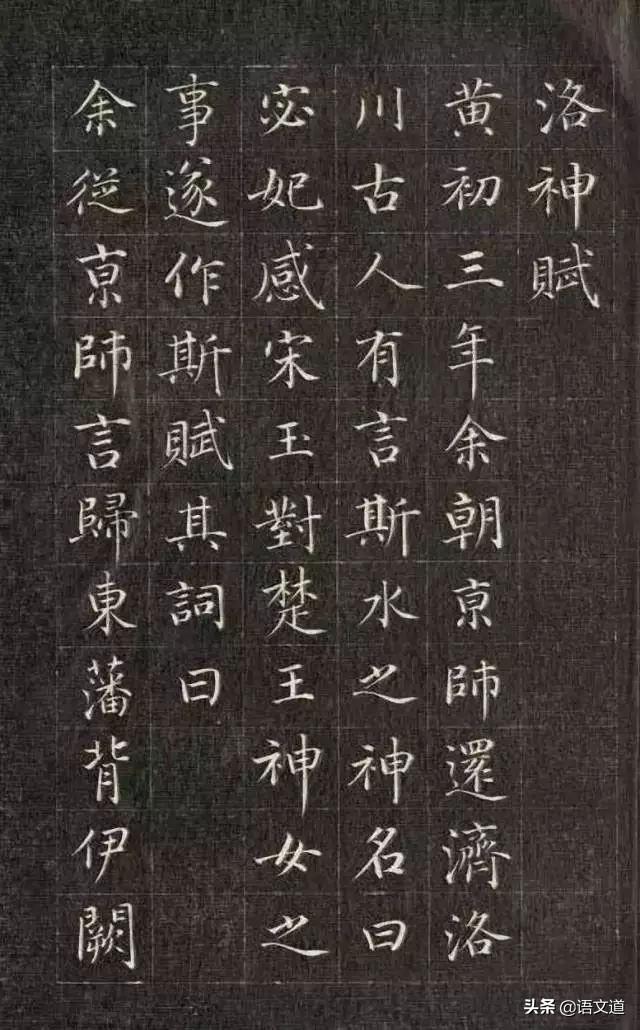 洛神賦
黃初三年余朝京師還濟洛
川古人有言斯水之神名曰
宓妃感宋玉對楚王神女之
事遂作斯賦其詞曰
余從京師言歸東藩背伊闕
头条 @语文道